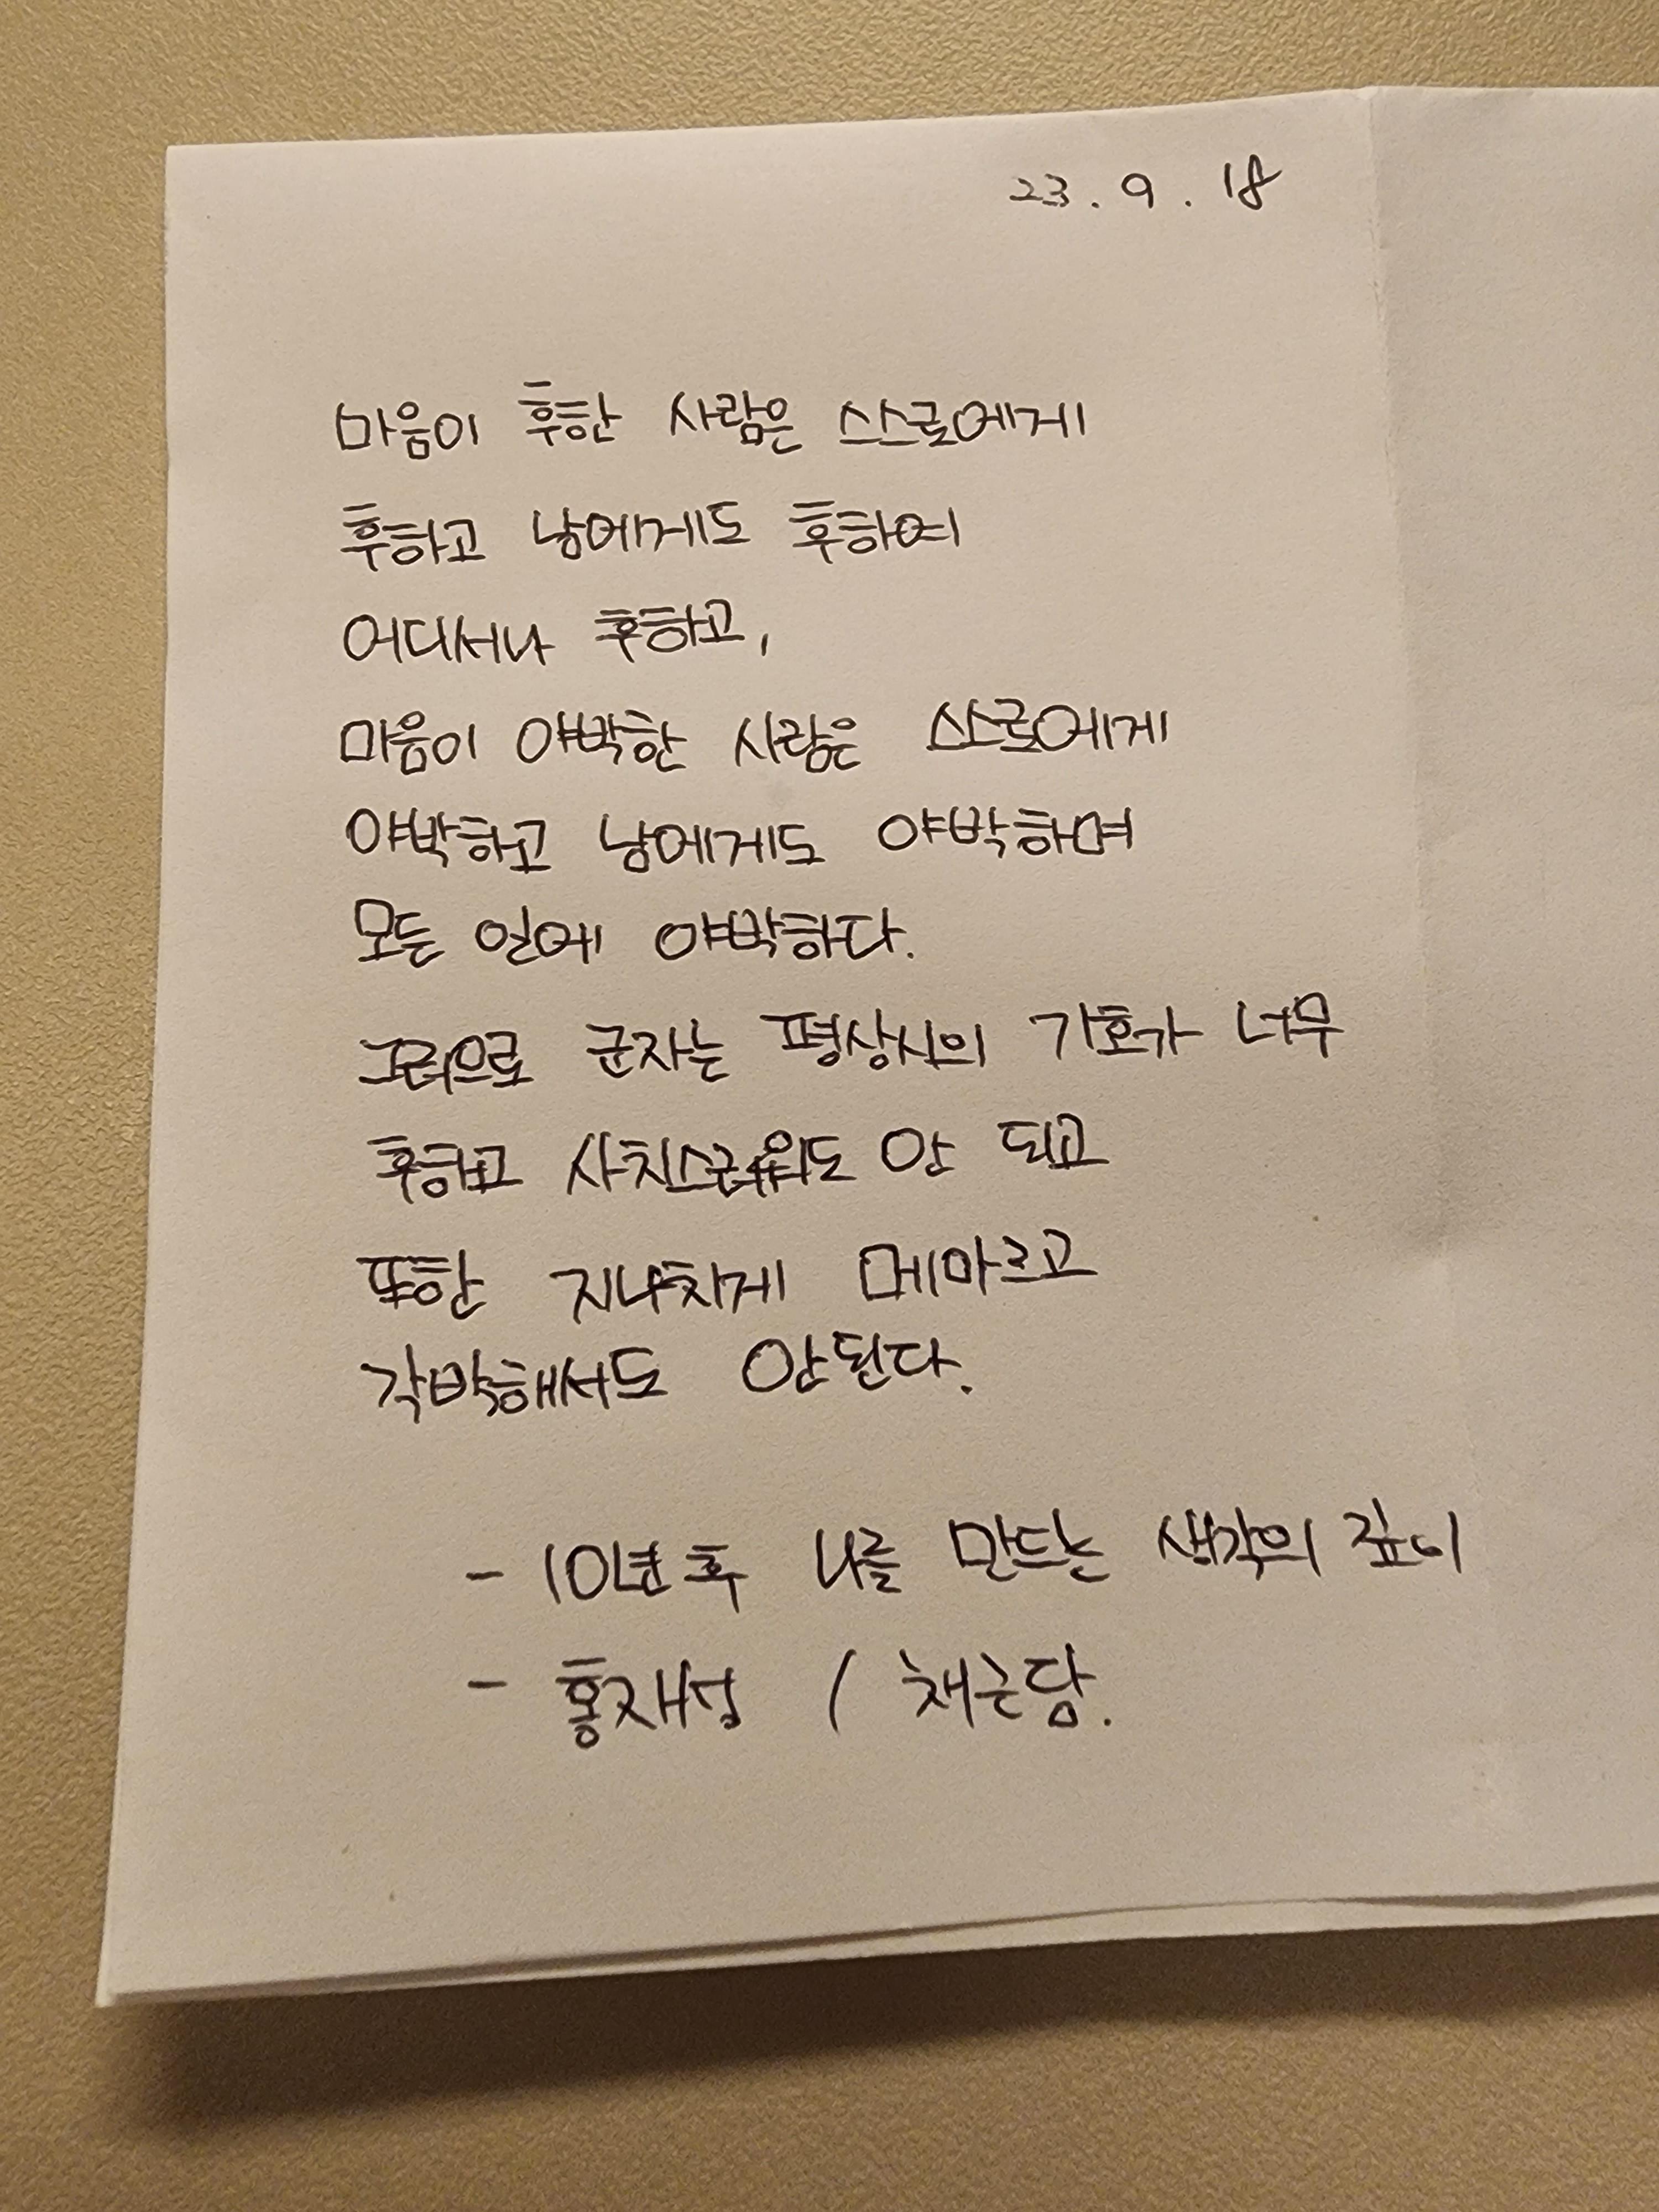 23. 9. 18
마음이 후한 사람은 스스로에게
후하고 남에게도 후하여
어디서나 후하고,
마음이 야박한 사람은 스스로에게
야박하고 남에게도 야박하며
모든 일에 야박하다.
그러므로 군자는 평상시의 기호가 너무
후하고 사치스러워도 안 되고
또한 지나치게 메마르고
각박해서도 안된다.
- 10년 후 나를 만드는 생각의 깊이
- 홍자성 / 채근담.